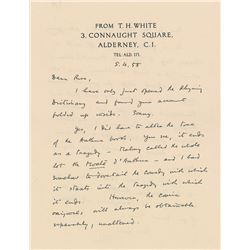 FROM T. H. WHITE
3, CONNAUGHT SQUARE,
ALDERNEY, C.I.
TEL: ALD. 171.
5. 4. 58
Dear Russ,
I have only just opened the Rhyming
Dictionary and found your account
folded up inside. Sorry.
Yes, I did have to alter the tone
of the Arthur books. You see, it ends
as a tragedy – Malory called the whole
lot the Morte d'Arthur – and I had
somehow to dovetail the comedy with which
it starts into the tragedy with which
it ends. However, the comic
originals will always be obtainable
separately, unaltered.